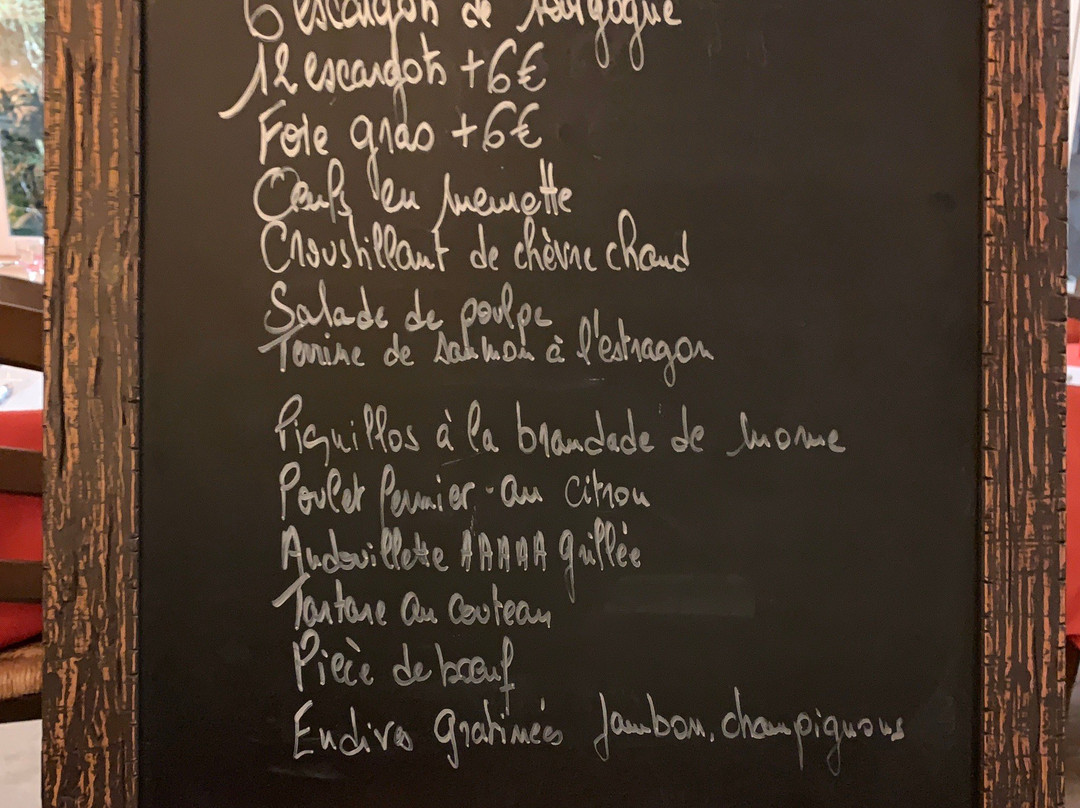 6 escargots de bourgogne
12 escargots +6€
Foie gras +6€
Oeufs en meurette
Croustillant de chèvre chaud
Salade de poulpe
Terrine de saumon à l'estragon
Piquillos à la brandade de morue
Poulet fermier au citron
Andouillette AAAAA grillée
Tartare au couteau
Pièce de boeuf
Endives gratinées jambon, champignons